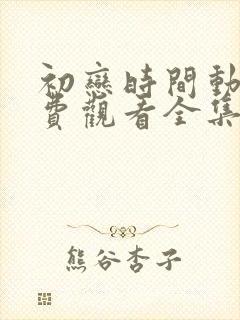 初戀時間動
費觀看全集
熊谷杏子